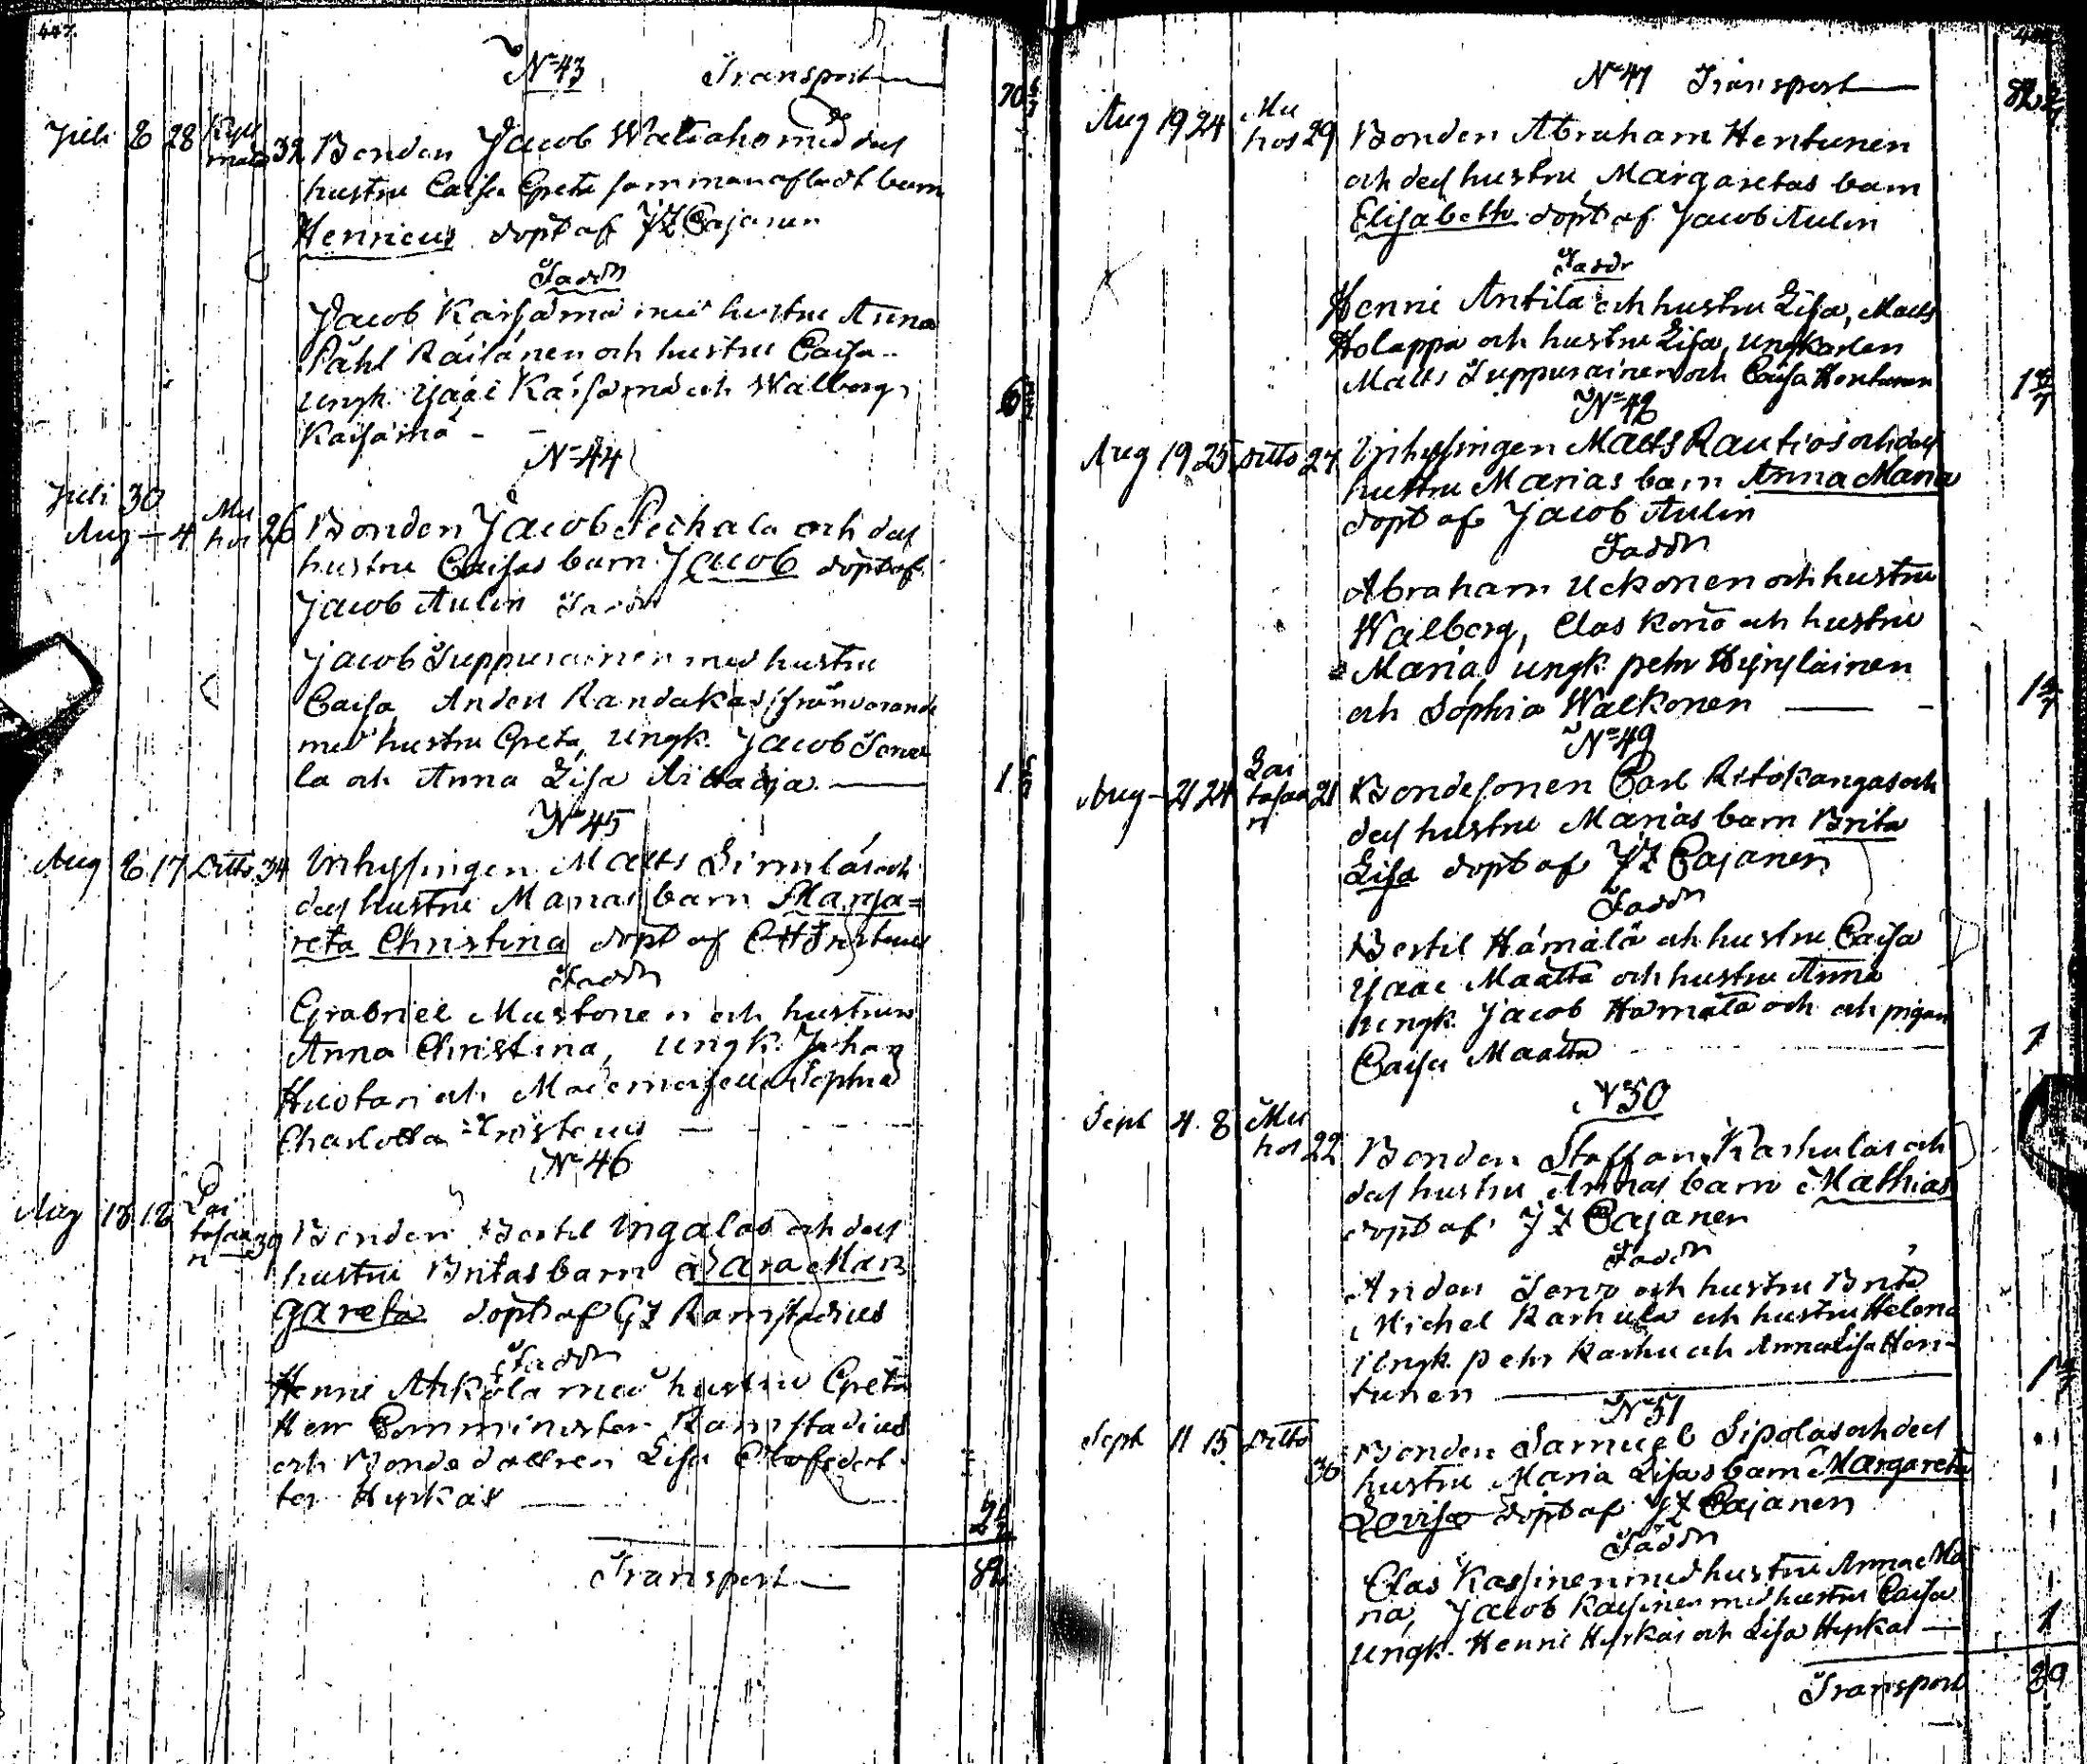 447.
No 43 Transport
70 6/7
Juli 8 28 Kyle maa 32 Bonden Jacob Waltiaho med dess
hustru Caisa Greta sammanafladt barn
Henricus döpt af JZ Cajanus
Faddr
Jacob Kaisama med hustru Anna
Påhl Räisänen och hustru Caisa
ungk. Isaac Kaisama och Walborg
Kaisama
No 44
Juli 30
Aug 4 Mu hos 26 Bonden Jacob Pechala och dess
hustru Caisas barn Jacob döpt af
Jacob Aulin Faddr
Jacob Suppurainen med hustru
Caisa Anders Randakad frånvarande
med hustru Greta, Ungk. Jacob Terva
la och Anna Lisa
No 45
Aug 8 17 Ditto 34 Inhysingen Matts Limilas och
dess hustru Marias barn Marga=
reta Christina döpt af CH Frosterus
Faddr
Gabriel Mustonen och hustrun
Anna Christina, Ungk. Johan
Huotari och Mademoiselle Sophia
Charlotta Frosterus
No 46
Aug 18 18 Pai tasaa n 39 Bonden Bertil Ingalas och dess
hustru Britas barn Sara Mar=
gareta döpt af GZ Ramstadius
Faddr
Henric Ahkola med hustru Greta
Herr Comminister Ramstadius
och Bondedottren Lisa Olofsdot
ter Hyrkas
Transport 82
No 47 Transport
Aug 19 24 Mu hos 29 Bonden Abraham Hentunen
och dess hustru Margaretas barn
Elisabeth döpt af Jacob Aulin
Faddr
Henric Antila och hustru Lisa, Matts
Holappa och hustru Lisa, ungkarlen
Matts Suppurainen och Caisa Hentunen
No 48
Aug 19 25 ditto 24 Inhysingen Matts Rautios och dess
hustru Marias barn Anna Maria
döpt af Jacob Aulin
Faddr
Abraham Uckonen och hustru
Walborg, Clas Kono och hustru
Maria, ungk. pehr Hyryläinen
och Sophia Walkonen
No 49
Aug 21 24 Lai tasaa n 21 Bondesonen Carl Ritokangas och
dess hustru Marias barn Brita
Lisa döpt af JZ Cajanus
Faddr
Bertil Hämälä och hustru Caisa
Isaac Maatta och hustru Anna
ungk. Jacob Hamala och och pigan
Caisa Maatta 1
N 50
Sept 4 8 Mu hos 22 Bonden Staffan Karhulas och
dess hustru Annas barn Mathias
döpt af JZ Cajanus
Faddr
Anders Tervo och hustru Brita
Michel Karhula och hustru Helena
Ungk. pehr Karhu och Anna Lisa Hen-
tunen
No 51
Sept 11 15 Ditto 36 Bonden Samuel Sipolas och dess
hustru Maria Lisas barn Margareta
Lovisa döpt af JZ Cajanus
Faddr
Clas Kassinen med hustru Anna Ma
ria, Jacob Kassinen med hustru Caisa
ungk. Henric Hyrkas och Lisa Hyrkas 1
Transport 89